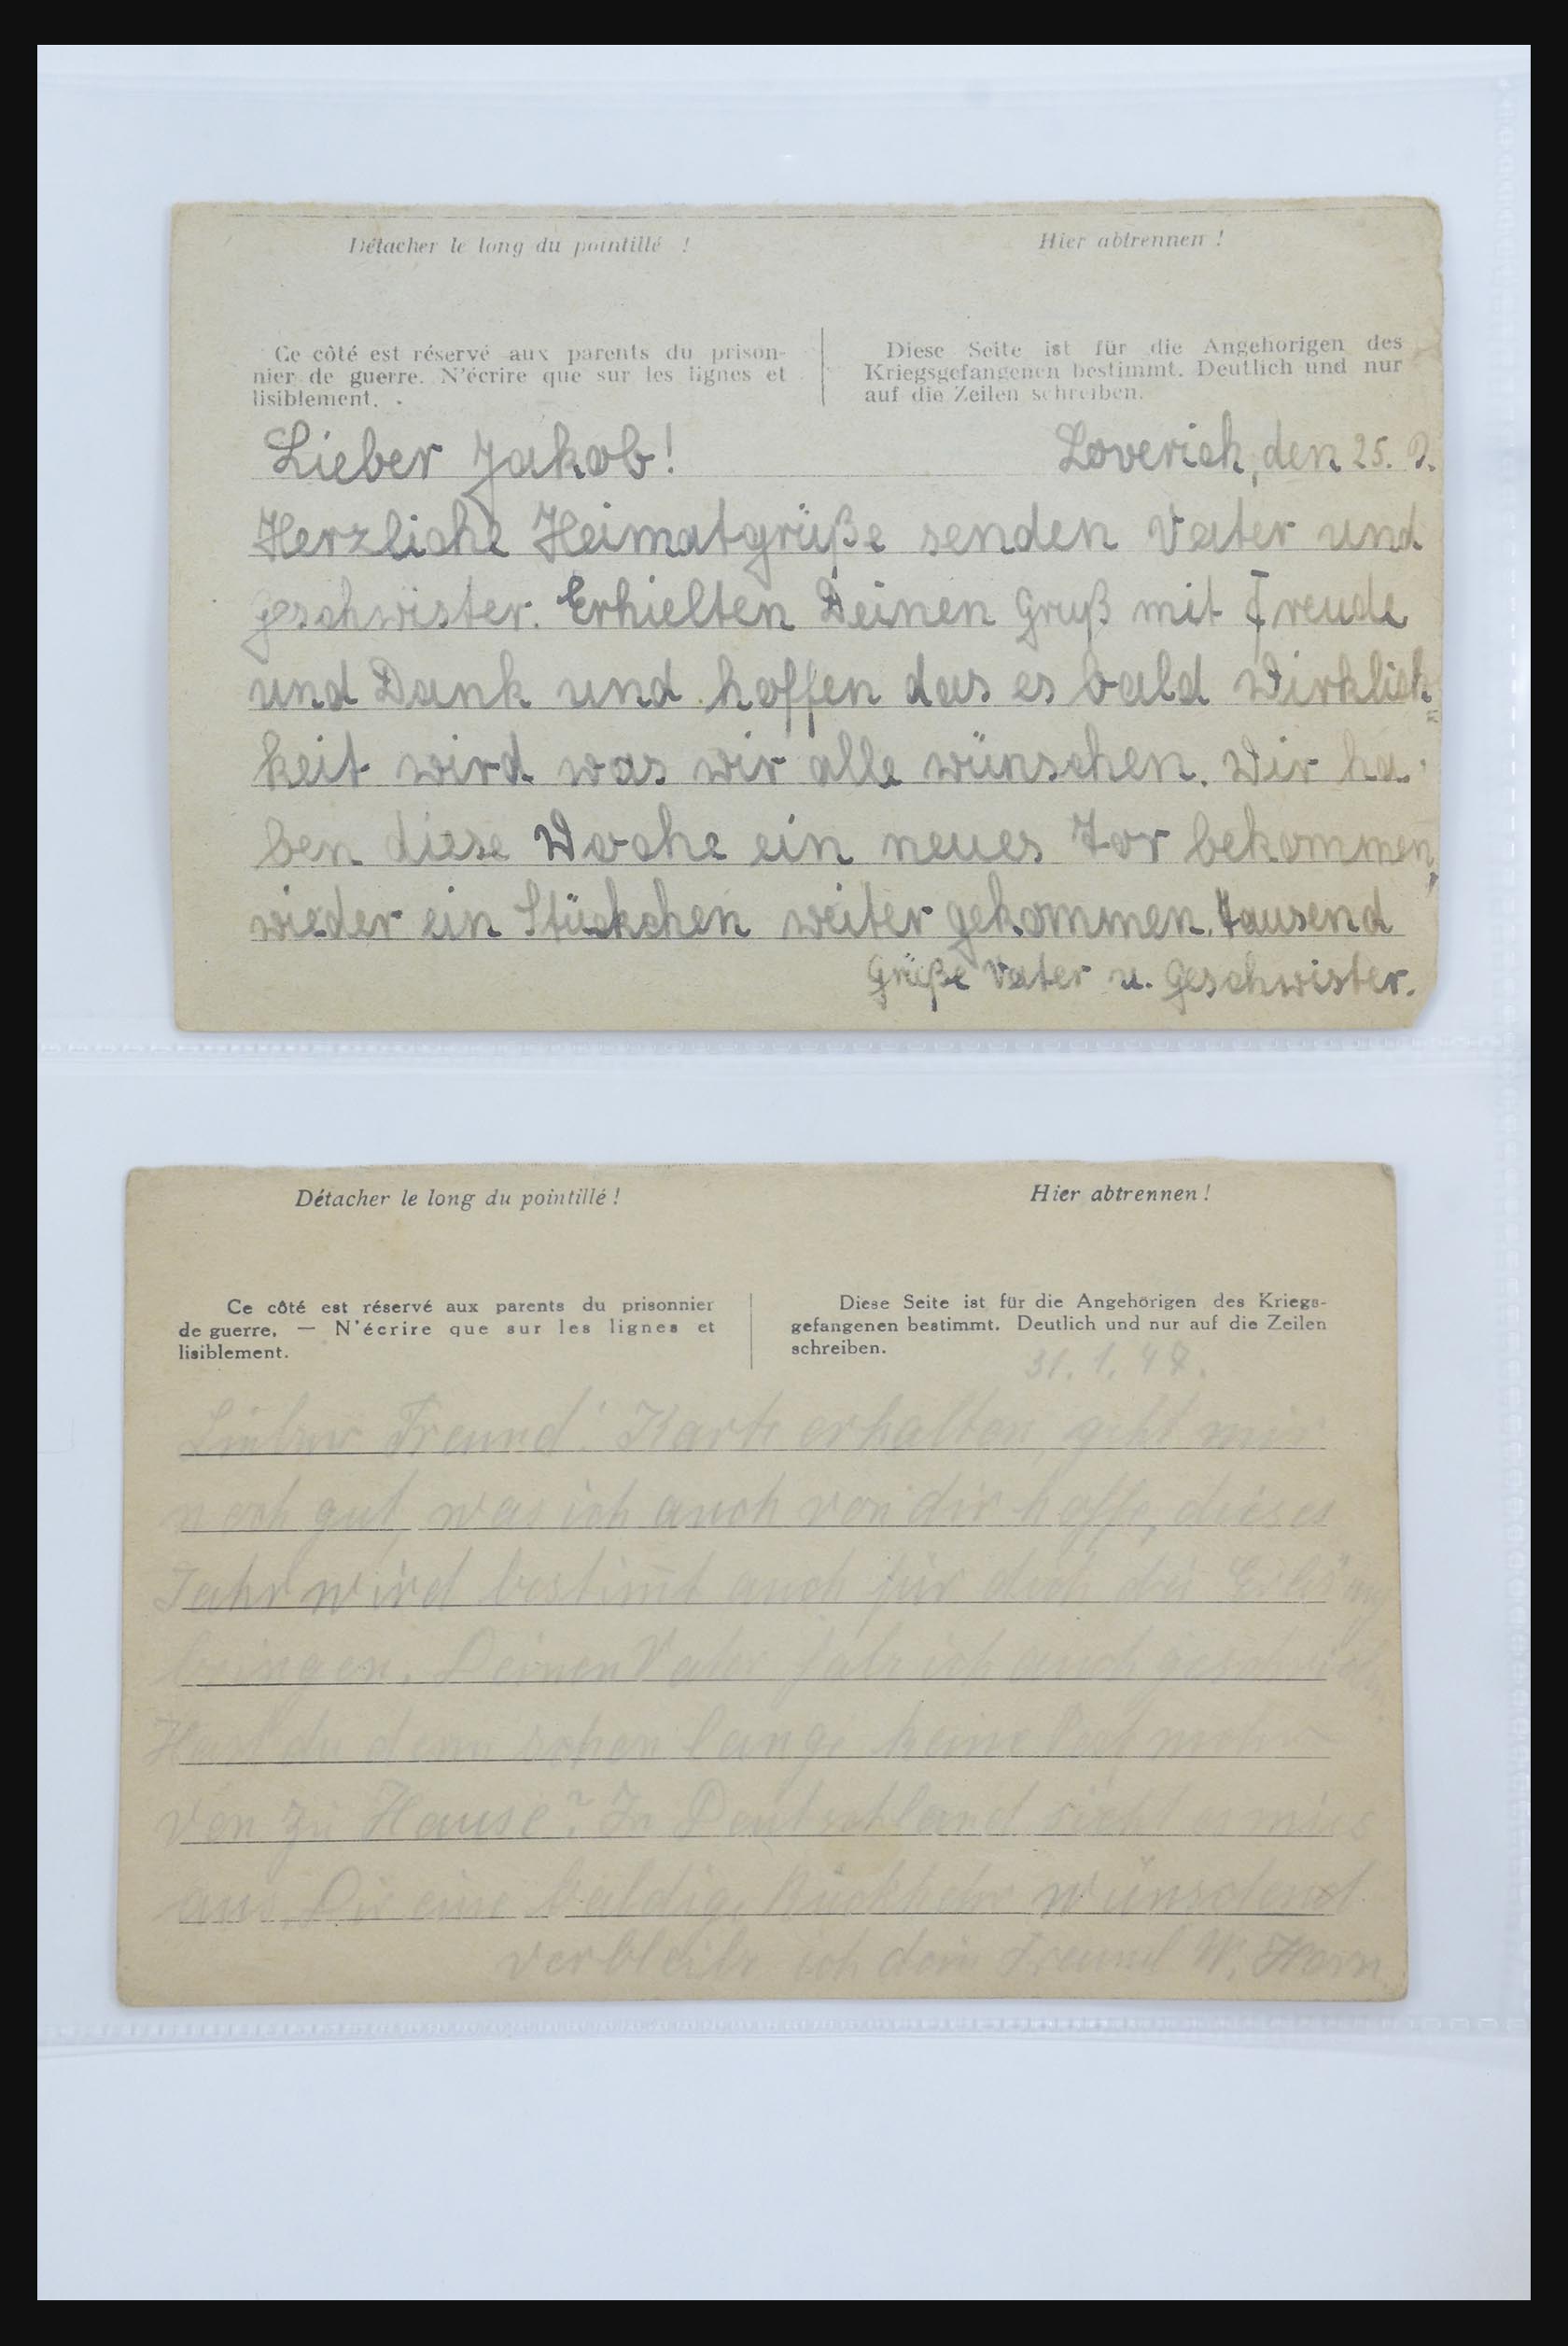 Détacher le long du pointillé !
Hier abtrennen !
Ce côté est réservé aux parents du prison-
nier de guerre. N'écrire que sur les lignes et
lisiblement.
Diese Seite ist für die Angehörigen des
Kriegsgefangenen bestimmt. Deutlich und nur
auf die Zeilen schreiben.
Lieber Jakob! Loverich, den 25.
Herzliche Heimatgrüße senden Vater und
Geschwister. Erhielten Deinen Gruß mit Freude
und Dank und hoffen das es bald Wirklich=
keit wird was wir alle wünschen. Wir ha-
ben diese Woche ein neues Tor bekommen,
wieder ein Stückchen weiter gekommen. Tausend
Grüße Vater u. Geschwister.
Détacher le long du pointillé !
Hier abtrennen !
Ce côté est réservé aux parents du prisonnier
de guerre. — N'écrire que sur les lignes et
lisiblement.
Diese Seite ist für die Angehörigen des Kriegs-
gefangenen bestimmt. Deutlich und nur auf die Zeilen
schreiben.
31. 1. 48.
Lieber Freund! Karte erhalten, geht mir
noch gut, was ich auch von dir hoffe, dieses
Jahr wird bestimmt auch für dich die
bringen. Deinen Vater hab ich auch
Hast du denn schon lange keine Post mehr
von zu Hause? In Deutschland sieht es mies
aus. Dir eine baldige Rückkehr wünschend
verbleibe ich dein Freund W. Horn.